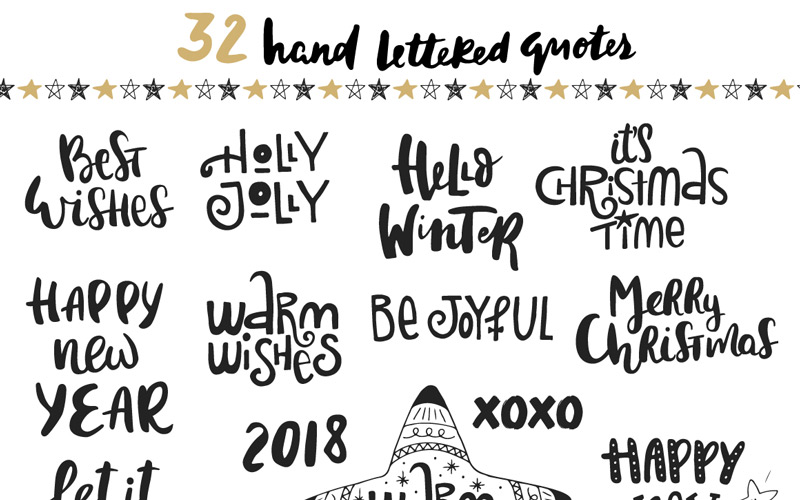 32 hand lettered quotes
Best
Wishes
Holly
Jolly
Hello
Winter
it's
Christmas
Time
Happy
new
Year
warm
wishes
Be Joyful
Merry
Christmas
2018
xoxo
let it
warm
Happy